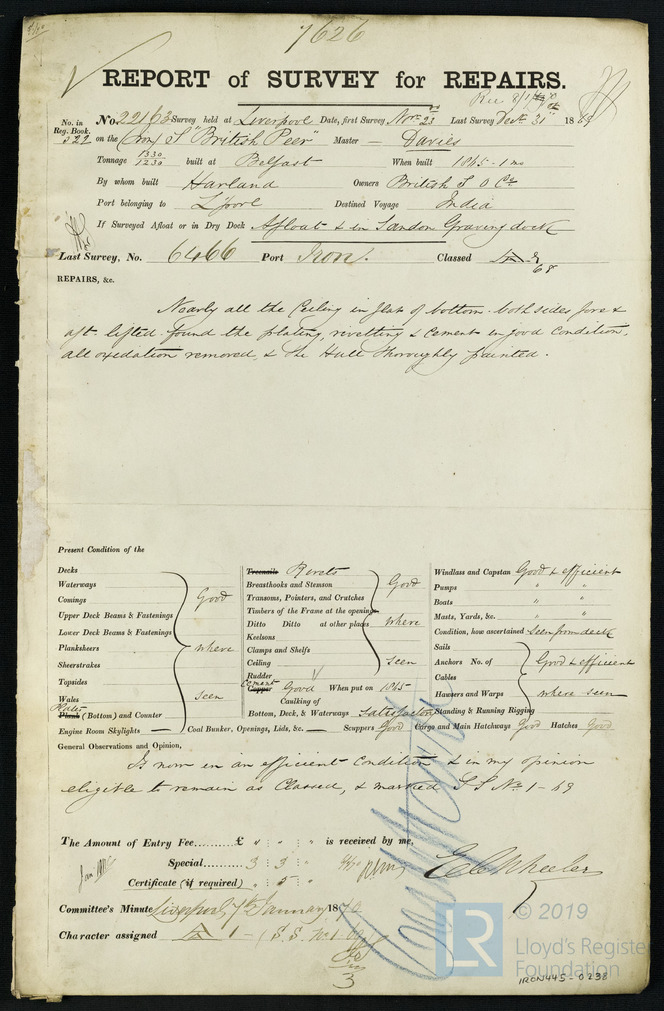 7626
REPORT of SURVEY for REPAIRS.
Rec 8/1/70
No. in Reg. Book. 522
No. 22163 Survey held at Liverpool Date, first Survey Novr 23rd Last Survey Decr 31st 1869
on the (Iron) S "British Peer" Master — Davies
Tonnage 1330 / 1230 built at Belfast When built 1865 - 1 mo
By whom built Harland Owners British S O Co.
Port belonging to L'pool Destined Voyage India
If Surveyed Afloat or in Dry Dock Afloat & in Sandon Graving dock
Last Survey, No. 6466 Port Iron. Classed A 68
REPAIRS, &c.
Nearly all the Ceiling in flat of bottom both sides fore &
aft lifted found the plating, rivetting & cement in good condition,
all oxidation removed, & the Hull thoroughly painted.
Present Condition of the
Decks
Waterways
Comings Good
Upper Deck Beams & Fastenings
Lower Deck Beams & Fastenings
Planksheers where
Sheerstrakes
Topsides
Wales seen
Plates
Plank (Bottom) and Counter
Engine Room Skylights —
Treenails Rivets
Breasthooks and Stemson Good
Transoms, Pointers, and Crutches
Timbers of the Frame at the openings
Ditto Ditto at other places where
Keelsons
Clamps and Shelfs
Ceiling seen
Rudder
Cement
Copper Good When put on 1865
Caulking of
Bottom, Deck, & Waterways Satisfactory
Coal Bunker, Openings, Lids, &c. — Scuppers Good Cargo and Main Hatchways Good Hatches Good
Windlass and Capstan Good & efficient
Pumps " "
Boats " "
Masts, Yards, &c. " "
Condition, how ascertained Seen from deck
Sails
Anchors No. of Good & efficient
Cables
Hawsers and Warps where seen
Standing & Running Rigging
General Observations and Opinion,
Is now in an efficient Condition & in my opinion
eligible to remain as Classed, & marked S S No 1 - 69
The Amount of Entry Fee.......... £ " : " : " is received by me,
Special.......... 3 : 3 : "
Certificate (if required) " : 5 : "
E C Wheeler
Committee's Minute Liverpool 7th January 1870
Character assigned A 1 - (S. S. No. 1 - 69)
3
LR © 2019
Lloyd's Register
Foundation
IRON445-0238